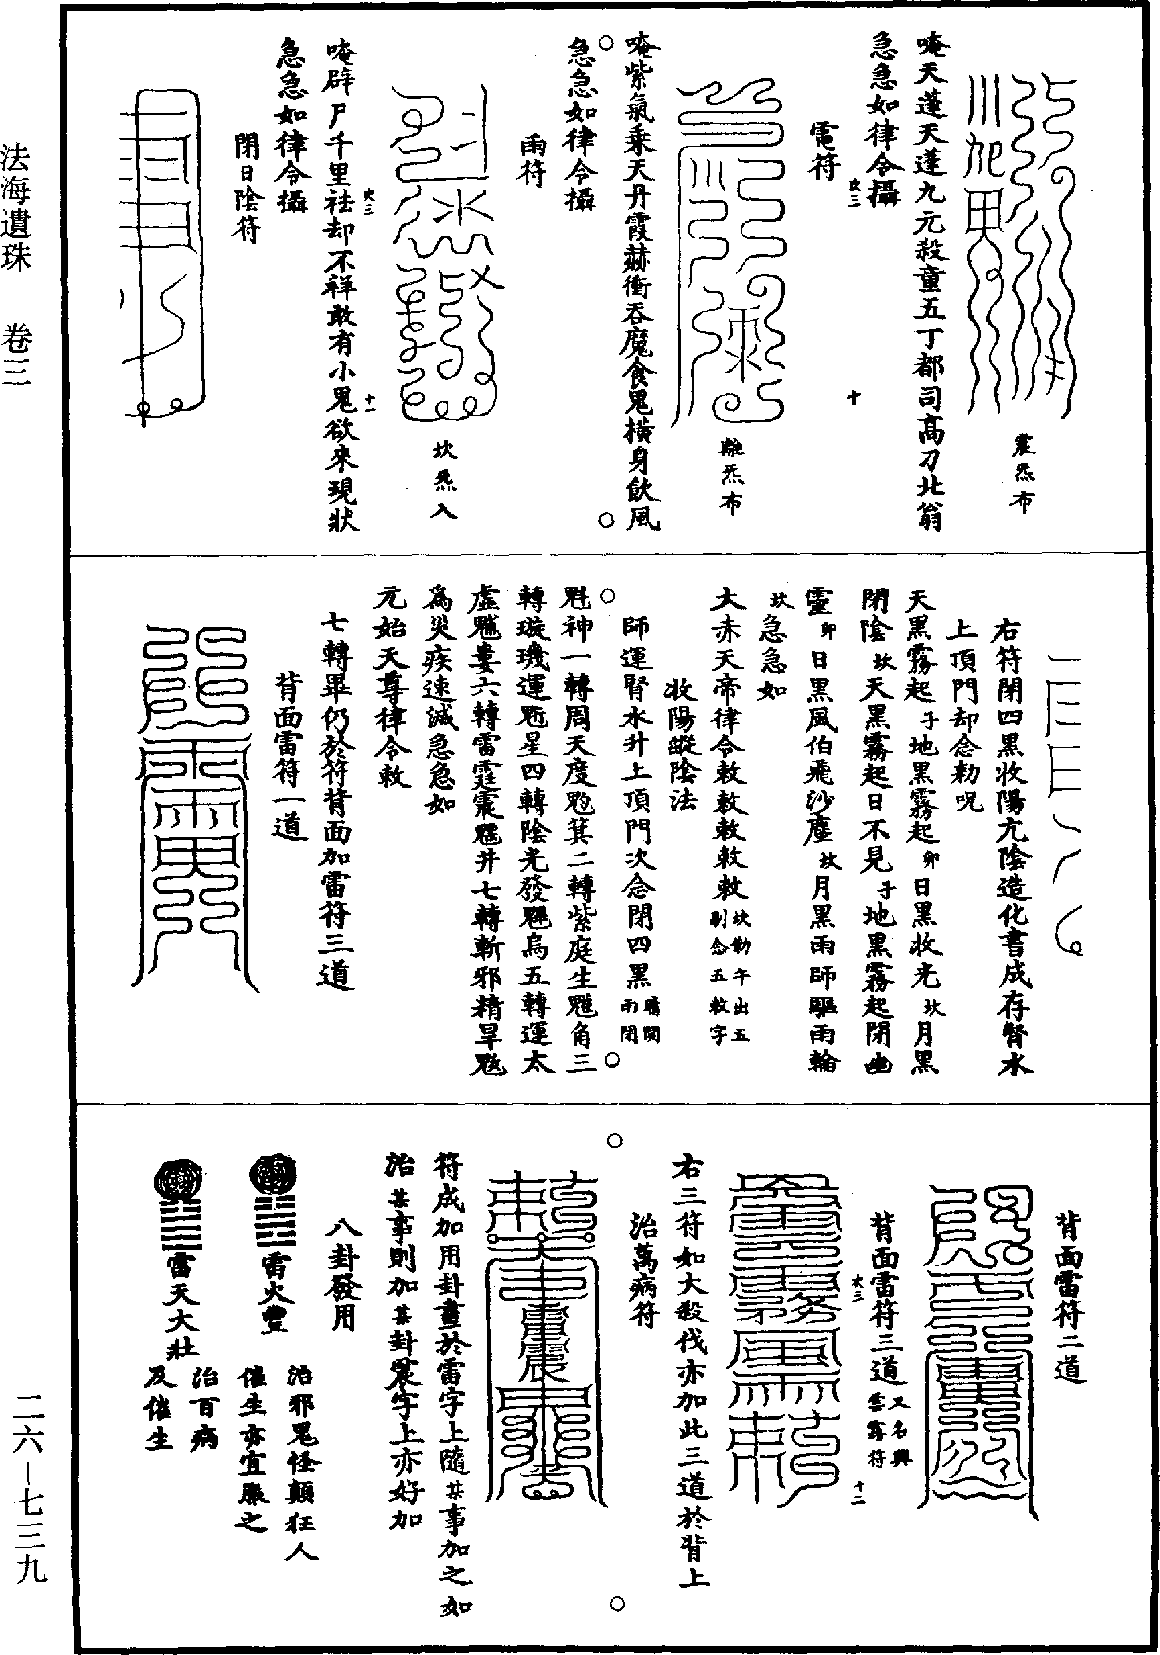 震炁布
唵天蓬天蓬九元殺童五丁都司高刀北翁
急急如律令攝
電符
十
離炁布
唵紫氣乘天丹霞赫衝吞魔食鬼橫身飲風
急急如律令攝
雨符
坎炁入
唵辟尸千里祛却不祥敢有小鬼欲來現狀
十一
急急如律令攝
閉日陰符
右符閉四黑收陽亢陰造化書成存腎水
上頂門却念勑呪
天黑霧起子地黑霧起卯日黑收光坎月黑
閉陰坎天黑霧起日不見子地黑霧起閉幽
靈卯日黑風伯飛沙塵坎月黑雨師驅雨輪
坎急急如
大赤天帝律令敕敕敕敕敕坎勒午出五
剔念五敕字
收陽蹤陰法
師運腎水升上頂門次念閉四黑
雨閉
魁神一轉周天度魒箕二轉紫庭生魓角三
轉璇璣運魁星四轉陰光發魓烏五轉運太
虛魒婁六轉雷霆震魓井七轉斬邪精旱魃
為災疾速滅急急如
元始天尊律令敕
七轉畢仍於符背面加雷符三道
背面雷符一道
背面雷符二道
背面雷符三道又名興
雲霧符
十二
右三符如大殺伐亦加此三道於背上
治萬病符
符成加用卦畫於雷字上隨其事加之如
治某事則加某卦震字上亦好加
八卦發用
雷火豐
治邪鬼怪顛狂人
催生亦宜服之
雷天大壯
治百病
及催生
法海遺珠 卷三
二六—七三九